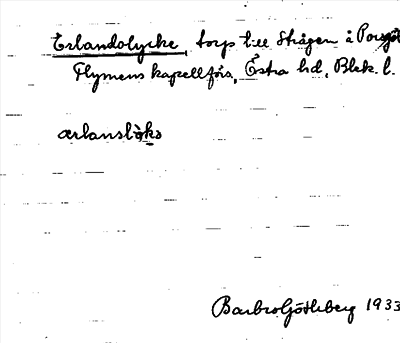 Erlandolycke torp till Strågen å
Flymens kapellförs, Östra hd, Blek. l.
ærlanslòkə
Barbro Götheberg 1933